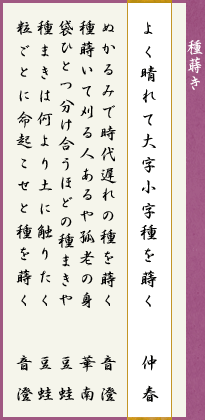 種蒔き
よく晴れて大字小字種を蒔く 仲春
ぬかるみで時代遅れの種を蒔く 音澄
種蒔いて刈る人あるや孤老の身 華南
袋ひとつ分け合うほどの種まきや 豆蛙
種まきは何より土に触りたく 豆蛙
粒ごとに命起こせと種を蒔く 音澄